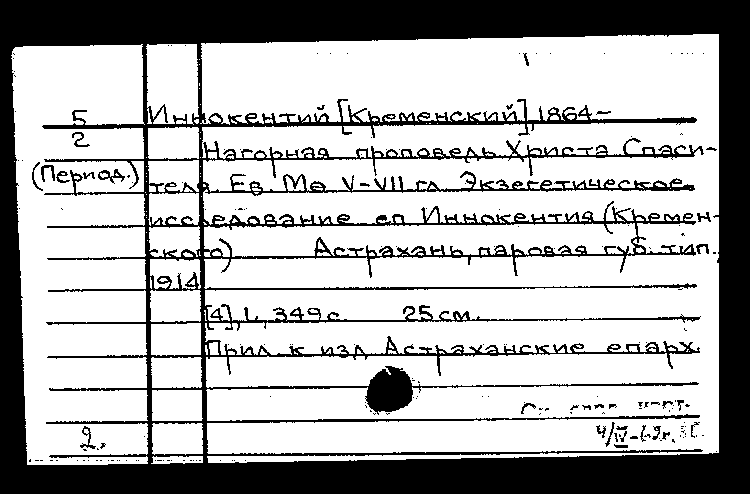 5
2
(Период.)
Иннокентий [Кременский], 1864-
Нагорная проповедь Христа Спаси-
теля Ев. Мѳ V-VII гл Экзегетическое
исследование еп Иннокентия (Кремен-
ского) Астрахань, паровая губ. тип.,
1914
[4], L, 349 с. 25 см.
Прил. к изд. Астраханские епарх.
2.
4/IV-62г.